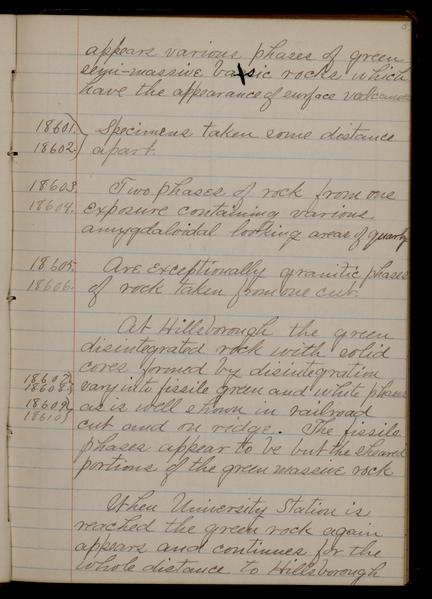 appears various phases of green
semi-massive basic rocks which
have the appearance of surface volcanics
18601.) Specimens taken some distance
18602.) apart.
18603. Two phases of rock from one
18604. exposure containing various
amygdaloidal looking areas of quartz
18605. Are exceptionally granitic phases
18606. of rock taken from one cut.
At Hillsborough the green
disintegrated rock with solid
cores formed by disintegration
18607.) 18608.) vary into fissile green and white phases
18609.) as is well shown in railroad
18610.) cut and on ridge. The fissile
phases appear to be but the sheared
portions of the green massive rock
When University Station is
reached the green rock again
appears and continues for the
whole distance to Hillsborough